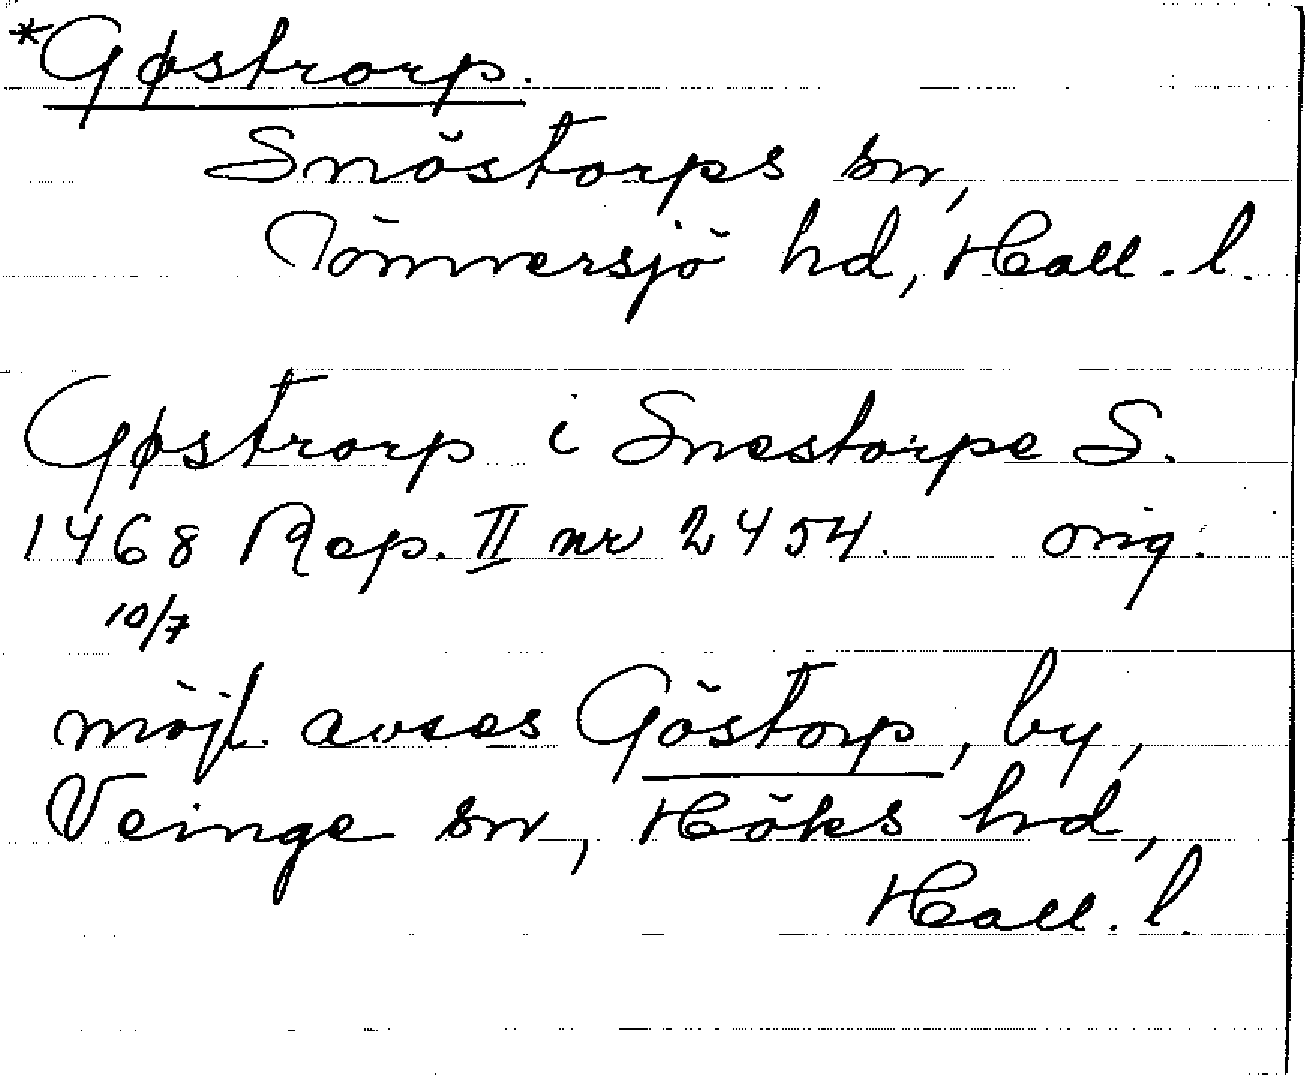 *Gøstrorp.
Snöstorps sn,
Tönnersjö hd, Hall. l.
Gøstrorp i Snestorpe S.
1468 Rep. II nr 2454. orig.
10/7
möjl. avses Göstorp, by,
Veinge sn, Höks hd,
Hall. l.